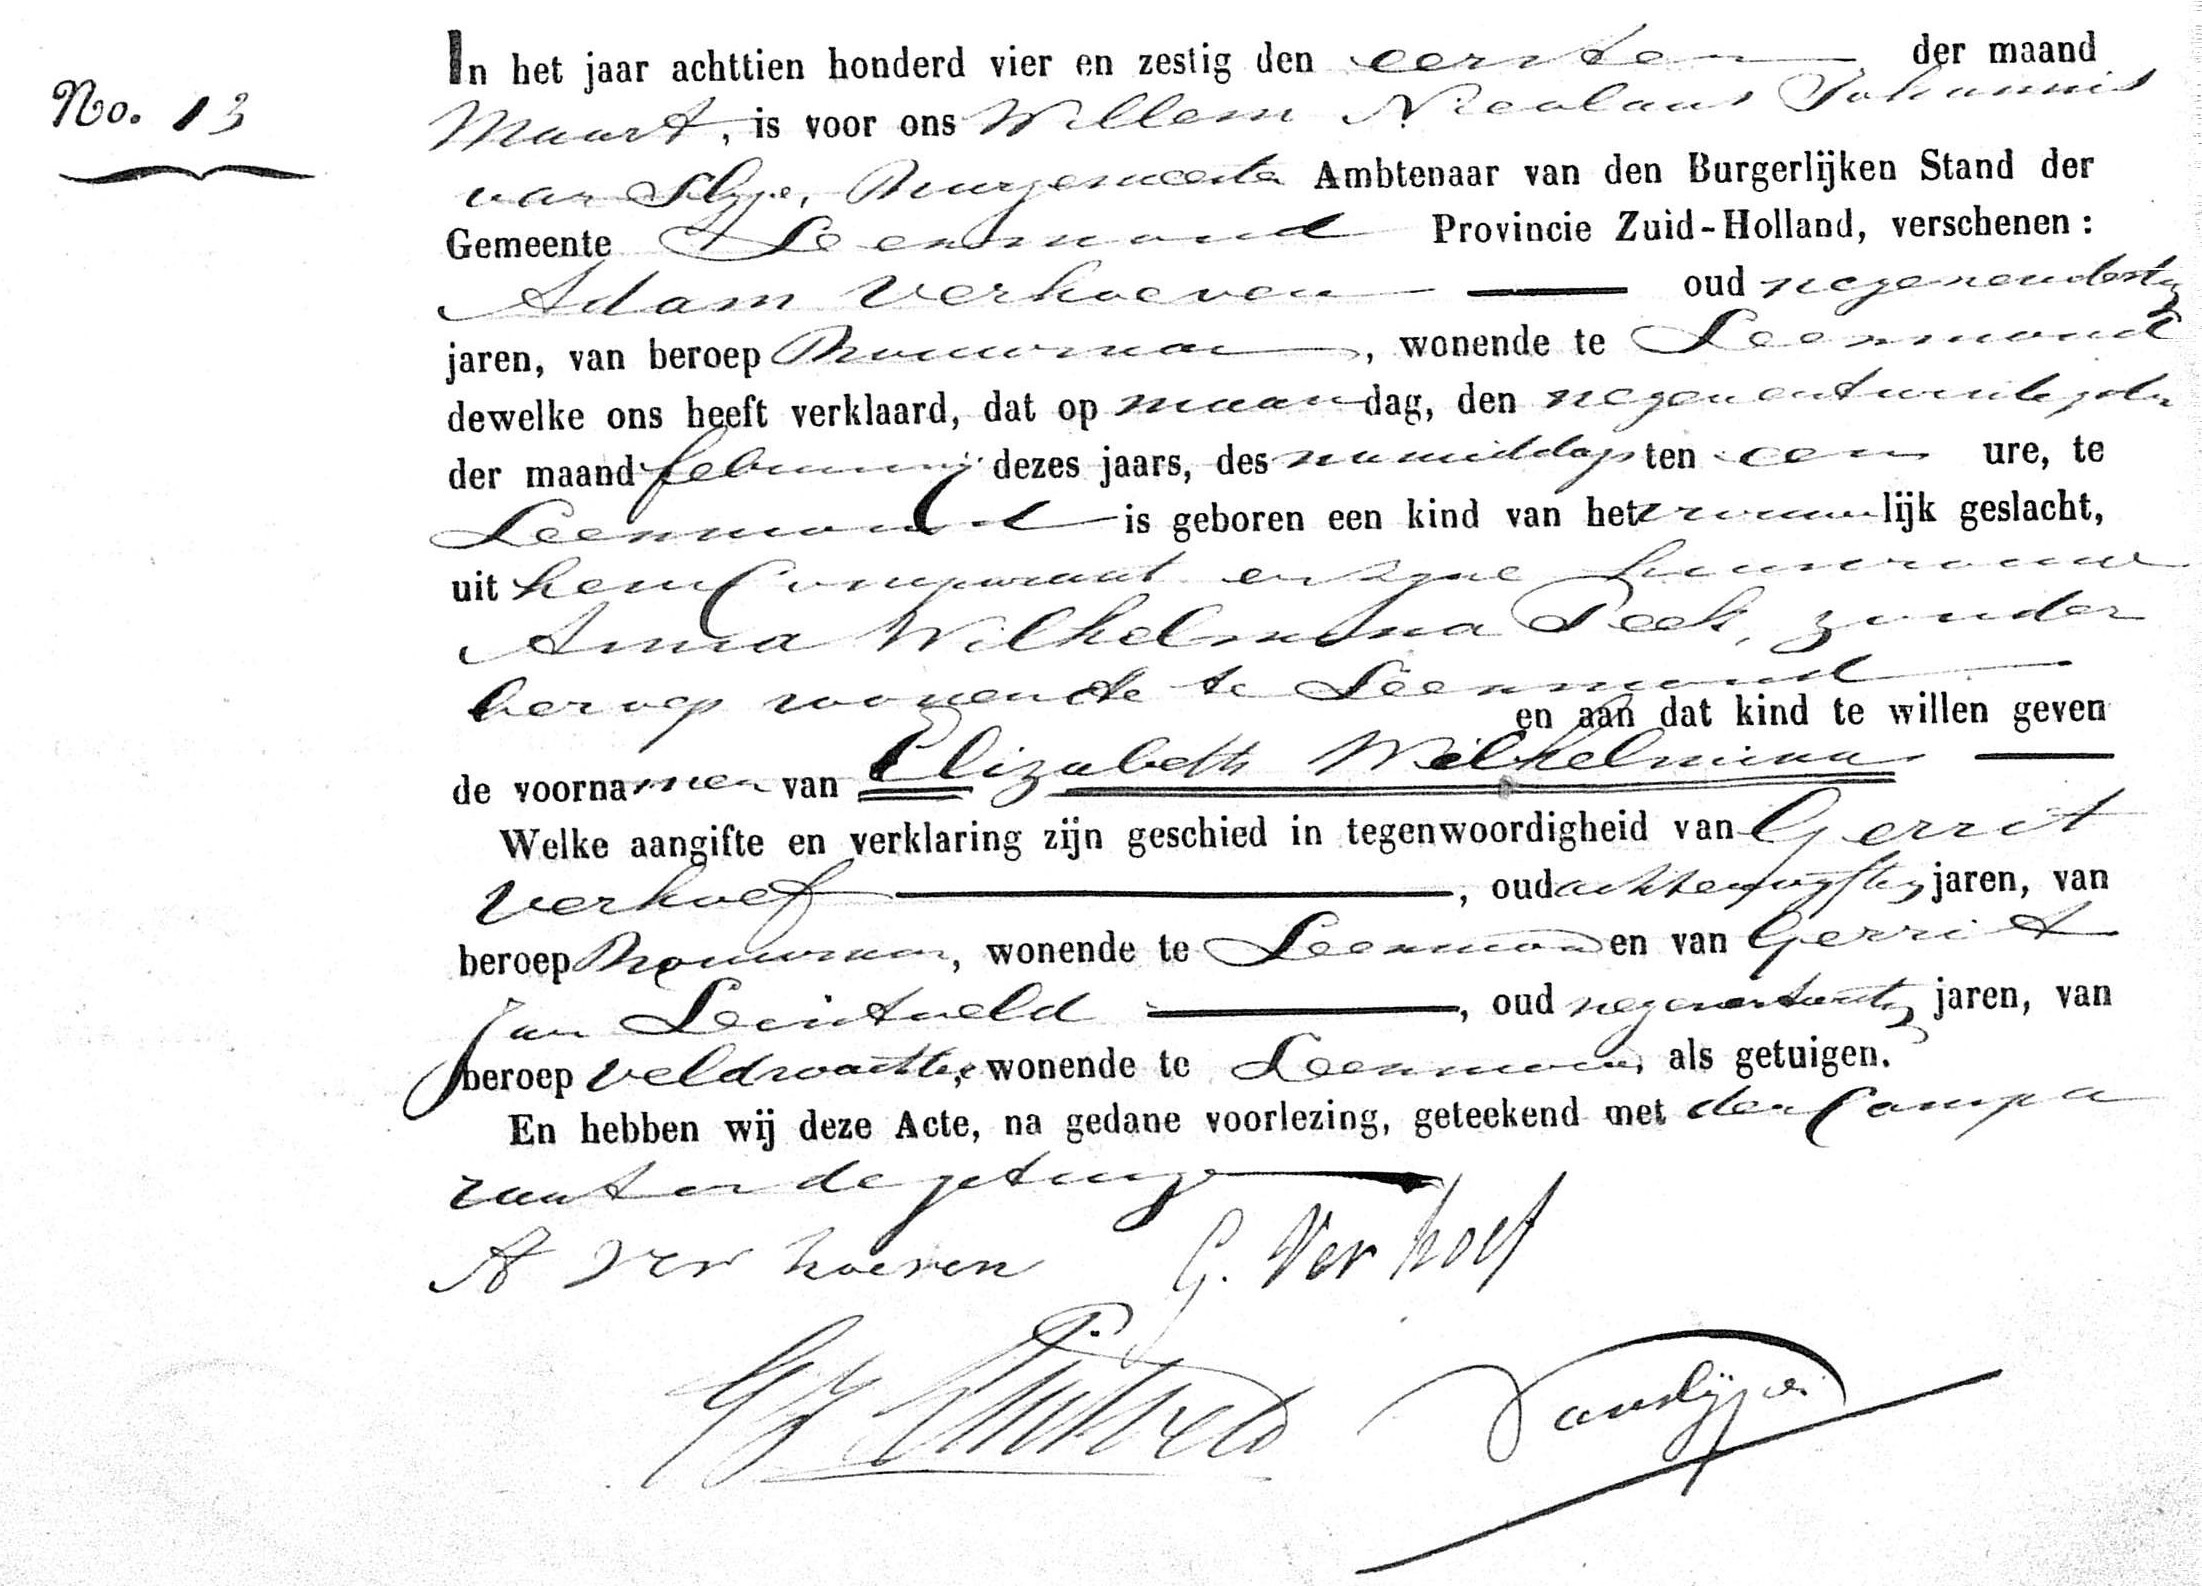 No. 13
In het jaar achttien honderd vier en zestig den eersten der maand
Maart, is voor ons Willem Nicolaas Johannis
van Slype, Burgemeester Ambtenaar van den Burgerlijken Stand der
Gemeente Leermond Provincie Zuid-Holland, verschenen:
Adam Verhoeven oud negenendertig
jaren, van beroep Bouwman, wonende te Leermond
dewelke ons heeft verklaard, dat op maandag, den negenentwintigsten
der maand februarij dezes jaars, des namiddags ten een ure, te
Leermond is geboren een kind van het vrouwelijk geslacht,
uit hem Comparant en zyne huisvrouw
Anna Wilhelmina Peek, zonder
beroep wonende te Leermond
en aan dat kind te willen geven
de voornamen van Elizabeth Wilhelmina
Welke aangifte en verklaring zijn geschied in tegenwoordigheid van Gerrit
Verhoef, oud achtenvyftig jaren, van
beroep Bouwman, wonende te Leermond en van Gerrit
Jan Leintveld, oud negenentwintig jaren, van
beroep veldwachter, wonende te Leermond als getuigen.
En hebben wij deze Acte, na gedane voorlezing, geteekend met den Compa
rant en de getuigen
A Verhoeven G. Verhoef
GJ Leintveld Van Slijpe